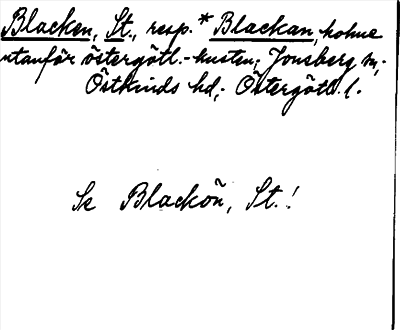 Blacken, St., resp. *Blackan, holme
utanför östergötl.-kusten; Jonsberg sn;
Östkinds hd; Östergötl. l.
Se Blackön, St.!